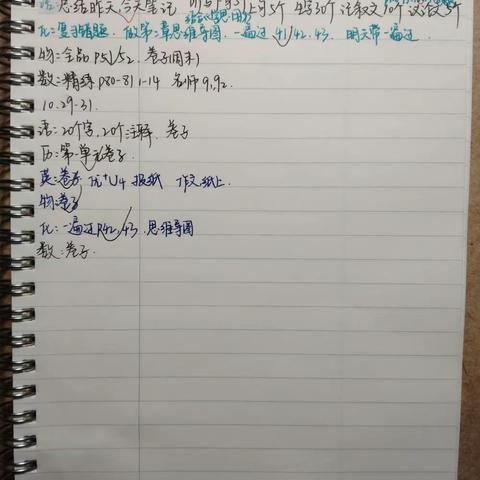 语:总结昨天,今天笔记 5个 30个 记叙文10个 议论文5个
化:复习错题,做第二章思维导图,一遍过41,42,43,明天带一遍过
物:全品P51,52,卷子(周末)
数:精练P80-81 1-14 名师91,92
10.29-31
语:20个字,20个注释,卷子
历:第一单元卷子
英:卷子,优+U4 报纸 作文纸上
物:卷子
化:一遍过P42,43,思维导图
数:卷子